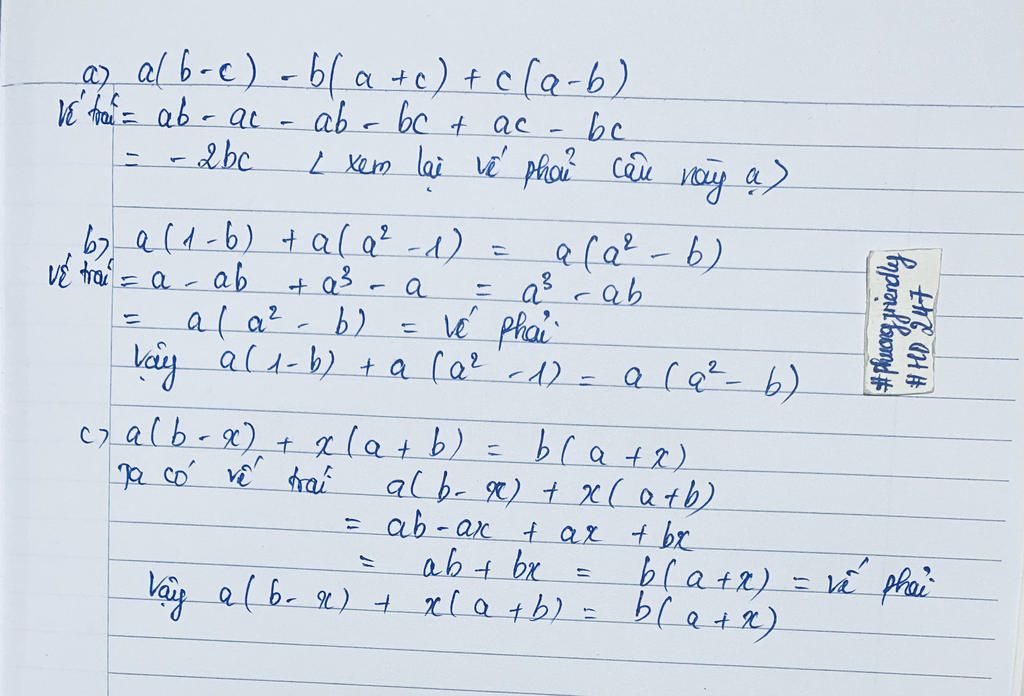 a) a(b-c) - b(a+c) + c(a-b)
Vế trái = ab - ac - ab - bc + ac - bc
= -2bc < xem lại vế phải câu này ạ>
b) a(1-b) + a(a² -1) = a(a² - b)
vế trái = a - ab + a³ - a = a³ - ab
= a(a² - b) = vế phải
Vậy a(1-b) + a(a² -1) = a(a² - b)
c) a(b-x) + x(a+b) = b(a+x)
Ta có vế trái a(b-x) + x(a+b)
= ab - ax + ax + bx
= ab + bx = b(a+x) = vế phải
Vậy a(b-x) + x(a+b) = b(a+x)
#phuongfriendly
#HD247